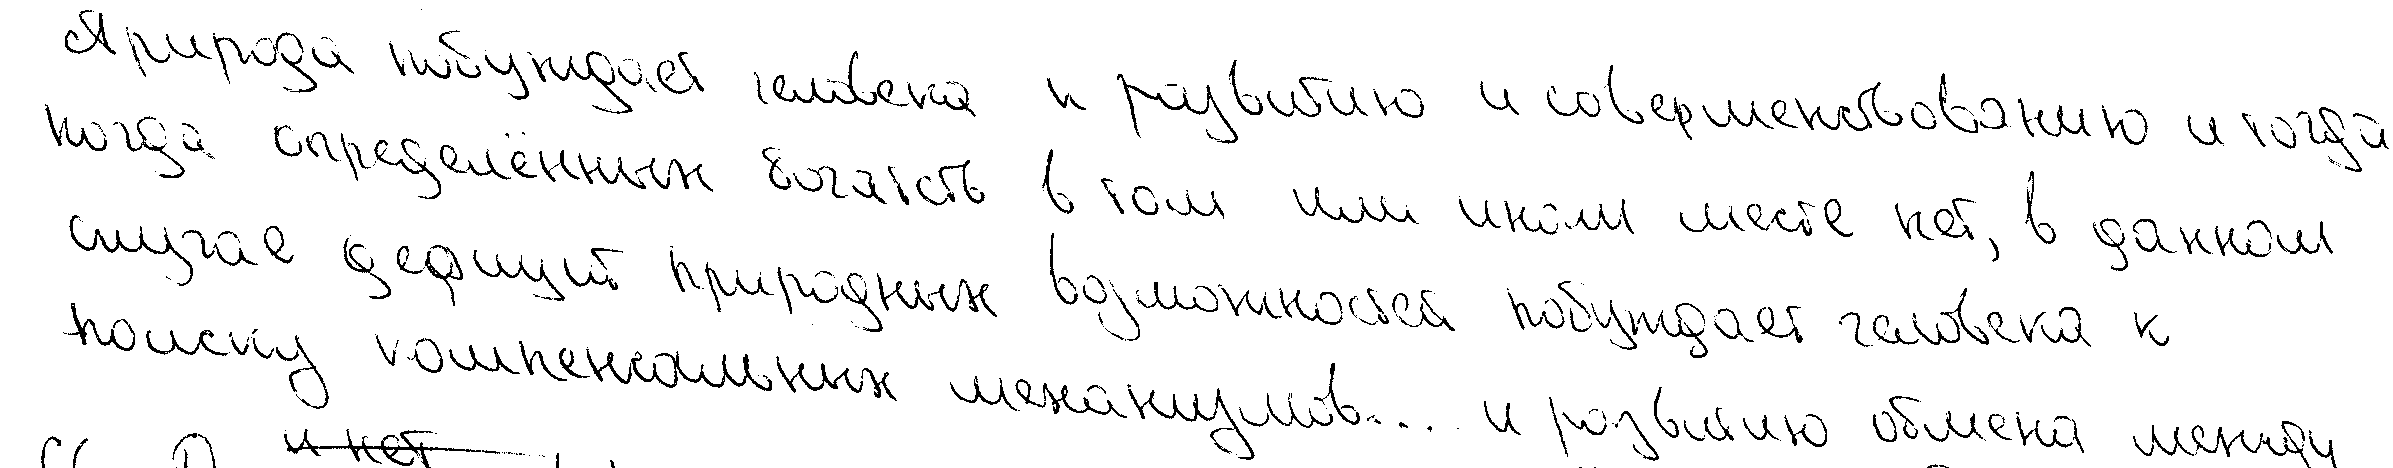 Природа побуждает человека к развитию и совершенствованию и тогда
когда определённых богатств в том или ином месте нет, в данном
случае дефицит природных возможностей побуждает человека к
поиску компенсальных механизмов... и развитию обмена между
и нет